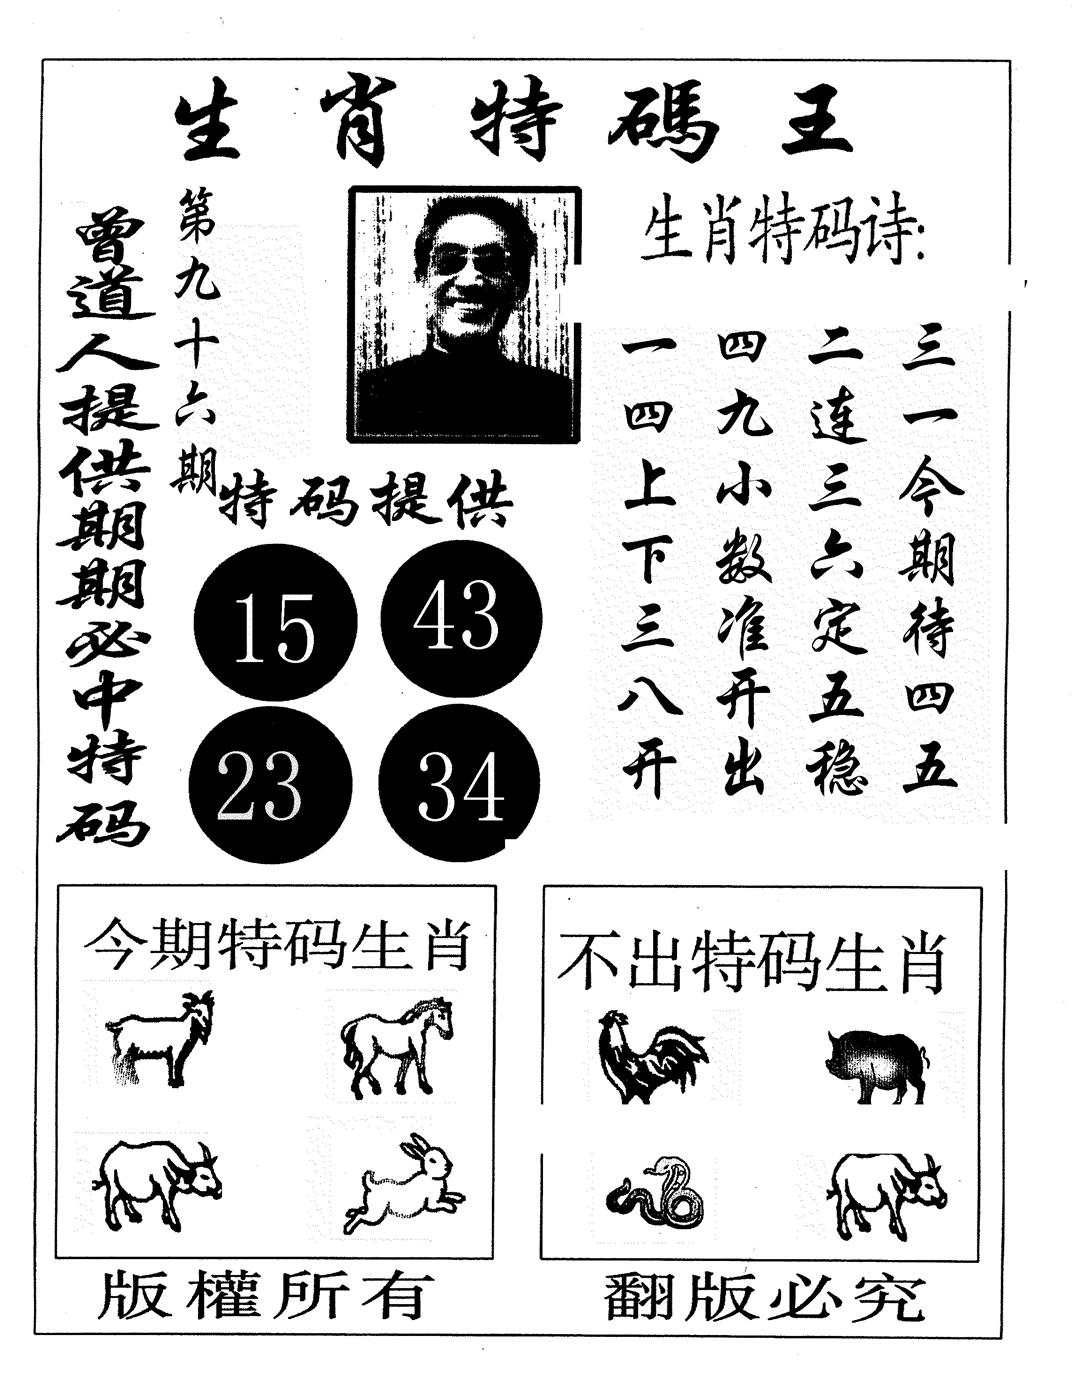 生肖特碼王
曾道人提供期期必中特码
第九十六期
生肖特码诗:
三一今期待四五
二连三六定五稳
四九小数准开出
一四上下三八开
特码提供
15 43
23 34
今期特码生肖
不出特码生肖
版權所有
翻版必究